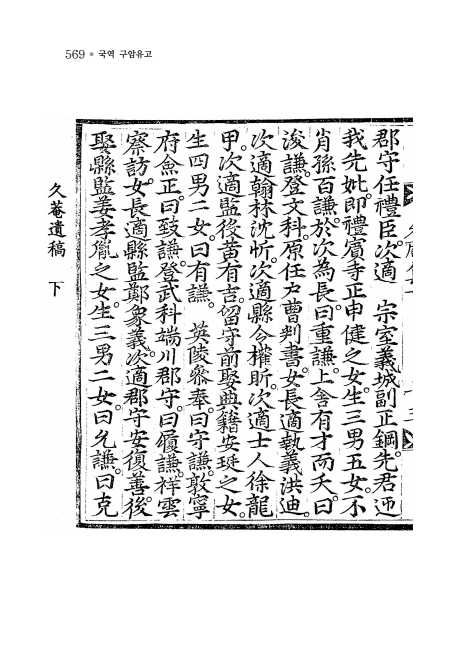 569 ● 국역 구암유고
郡守任禮臣。次適 宗室義城副正鋼。先君迎
我先妣。即禮賓寺正申健之女。生三男五女。不
肖孫百謙。於次為長。曰重謙。上舍有才而夭。曰
浚謙。登文科。原任戶曹判書。女長適執義洪迪。
次適翰林沈忻。次適縣令權昕。次適士人徐龍
甲。次適監後黃有吉。留守前娶典籍安珽之女。
生四男二女。曰有謙。 英陵叅奉。曰守謙。敦寧
府僉正。曰致謙。登武科端川郡守。曰履謙。祥雲
察訪。女長適縣監鄭象義。次適郡守安復善。後
娶縣監姜孝胤之女。生三男二女。曰允謙。曰克
久菴遺稿 下